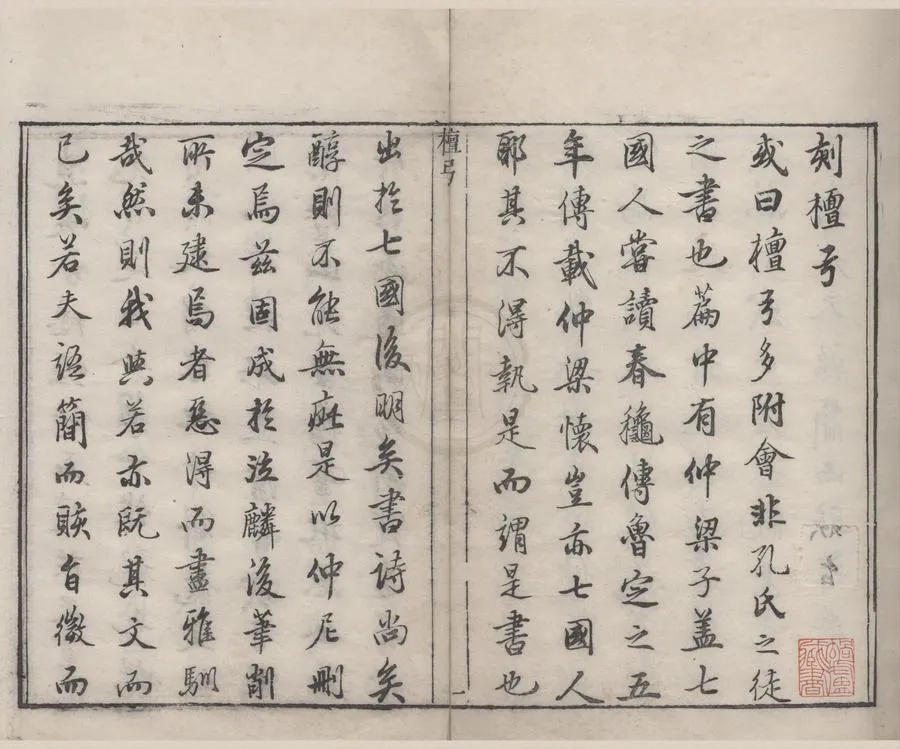 刻檀弓
或曰檀弓多附會非孔氏之徒
之書也篇中有仲梁子蓋七
國人嘗讀春龝傳魯定之五
年傳載仲梁懷豈亦七國人
耶其不得執是而謂是書也
檀弓
一
出於七國後明矣書詩尚矣
醇則不能無疵是以仲尼刪
定焉兹固成於泣麟後筆削
所未建焉者惡得而盡雅馴
哉然則我與若亦既其文而
已矣若夫語簡而賅旨微而